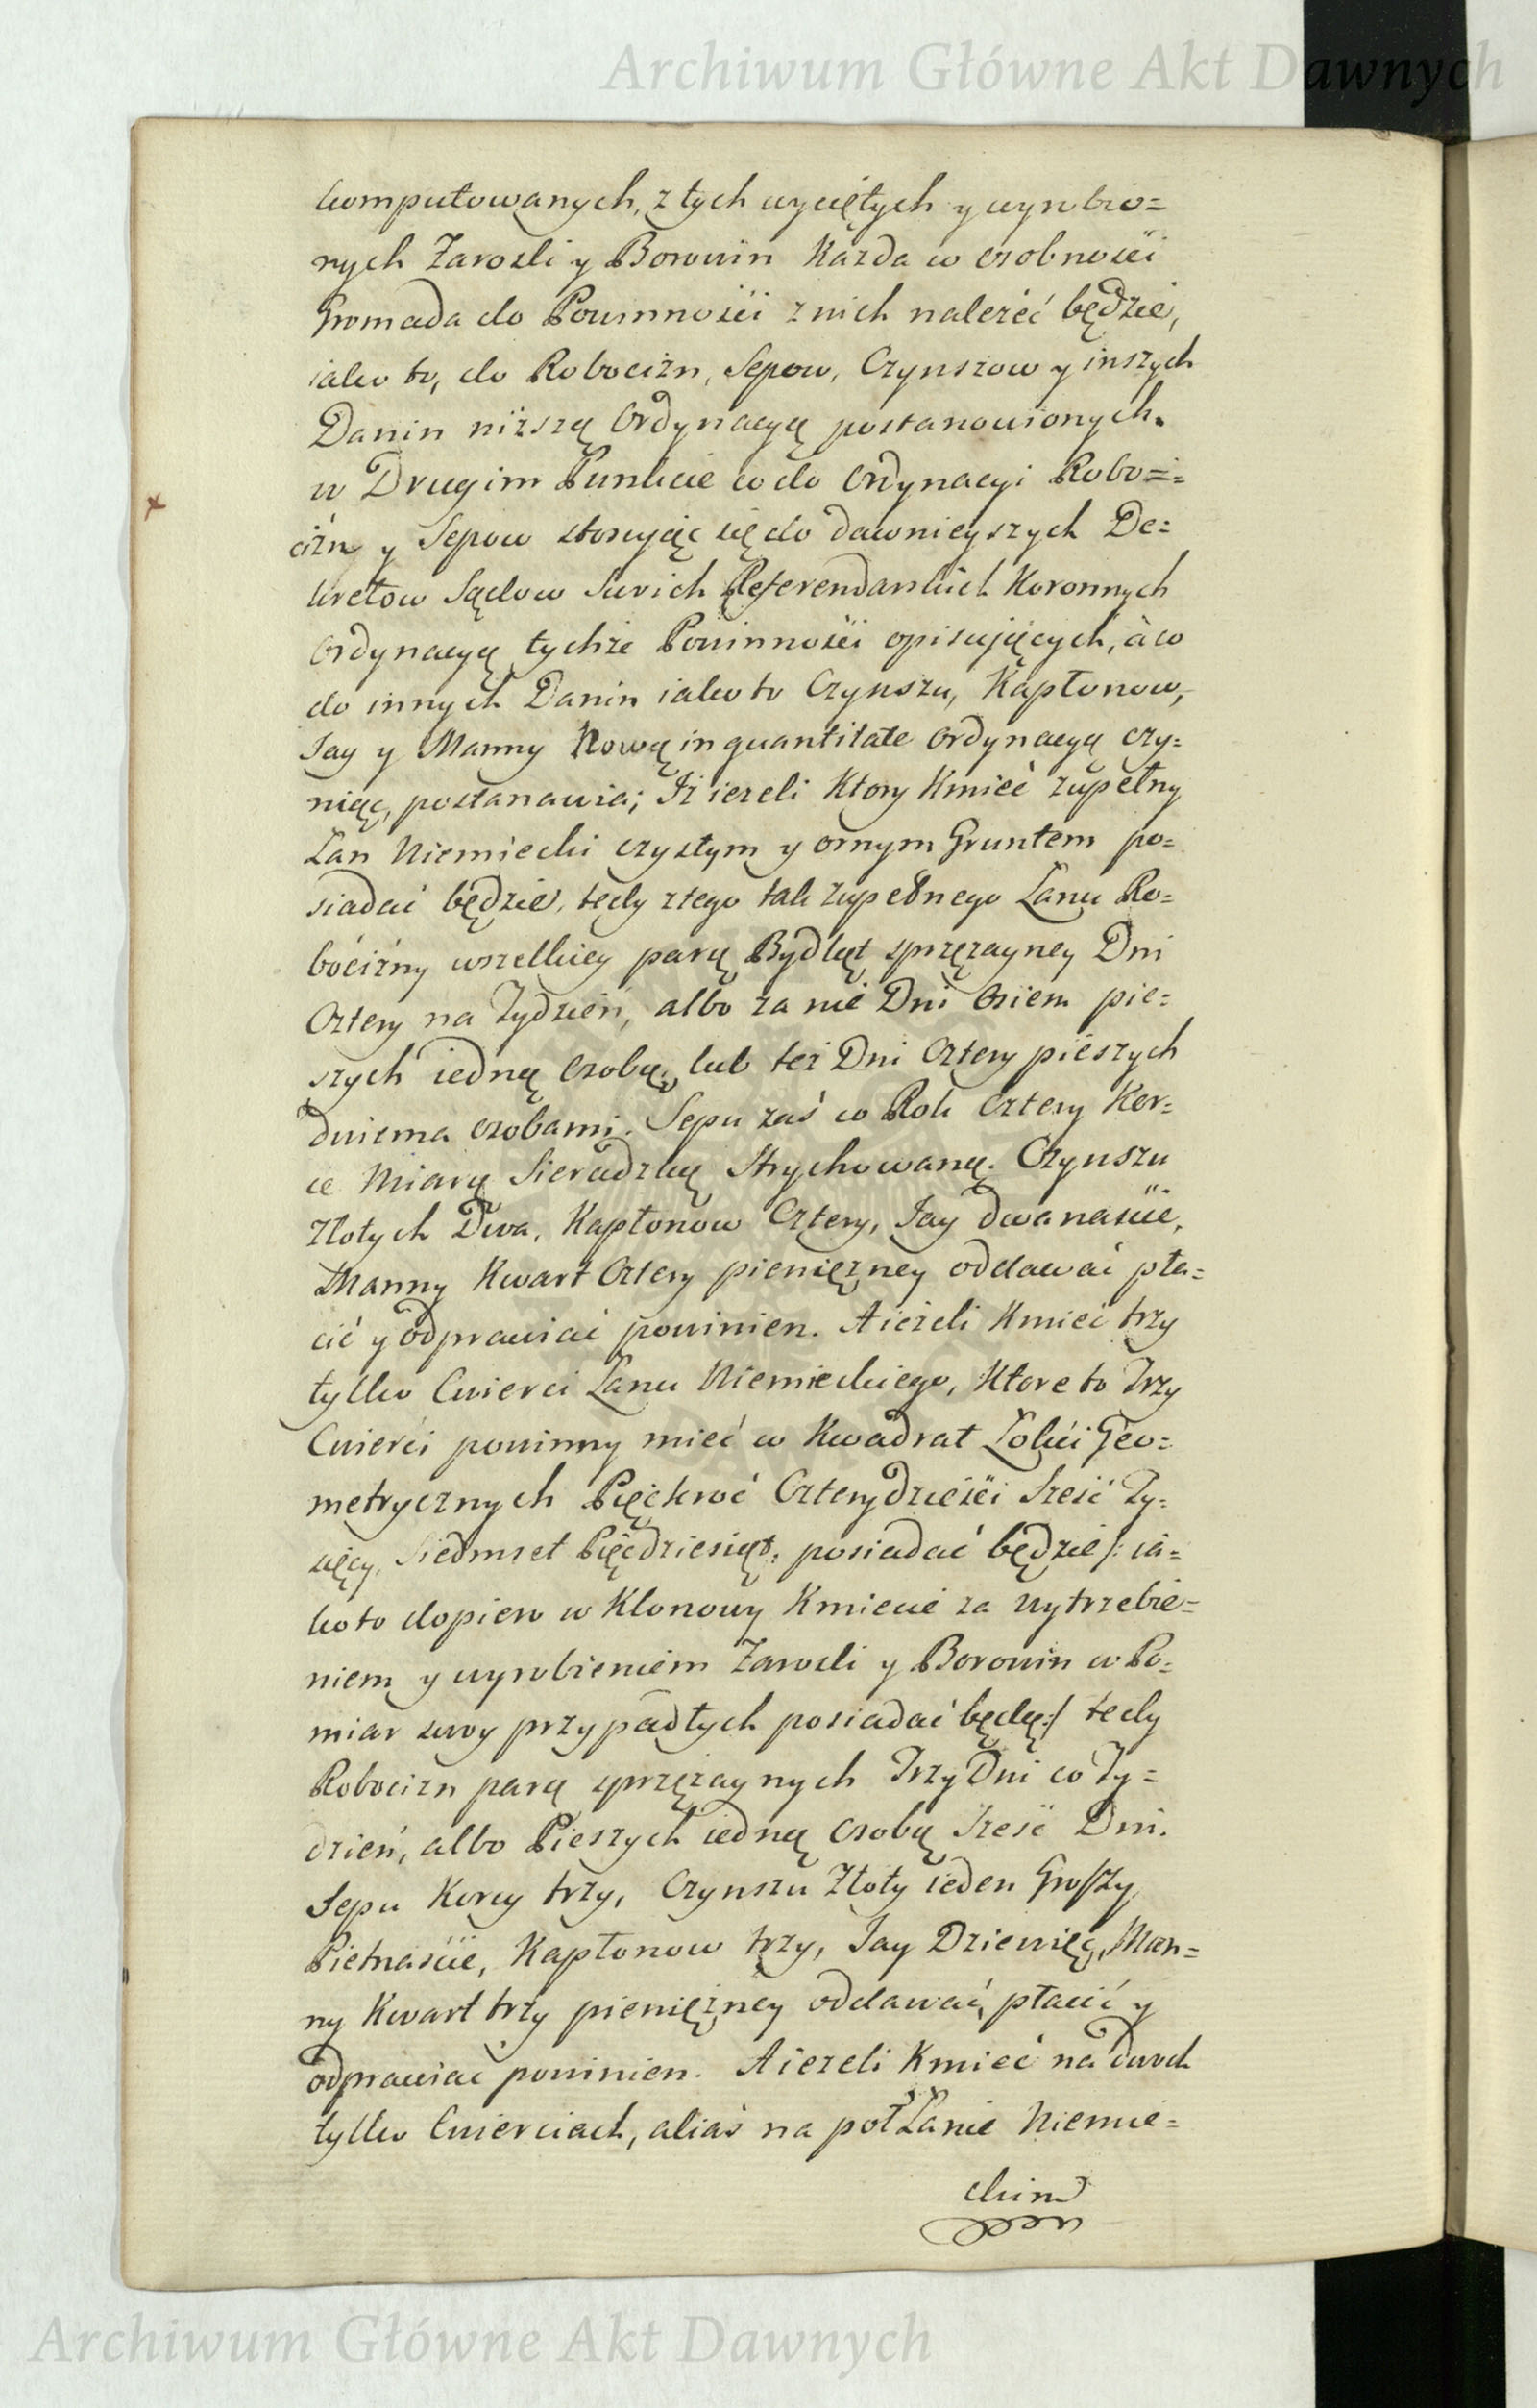 Archiwum Główne Akt Dawnych
komputowanych, z tych wyciętych y wyrobio=
nych Zarosli y Borowin Kazda w osobnosći
Gromada do Powinnosći z nich nalezéć będzie,
iako to, do Robocizn, Sepow, Czynszow y inszych
Danin niższą Ordynacyą postanowionych.
w Drugim Punkcie co do Ordynacyi Robo=
ćizn y Sepow stosując się do dawnieyszych De=
kretow Sądow Swoich Referendarskich Koronnych
Ordynacyą tychże Powinnosći opisujących, à co
do innych Danin iako to Czynszu, Kapłonow,
Jay y Manny Nową in quantitate Ordynacyą czy=
niąc, postanawia; Iż iezeli Ktory Kmieć zupełny
Łan Niemiecki czystym y ornym Gruntem po=
siadać będzie, tedy z tego tak zupełnego Łanu Ro=
boćizny wszelkiey parą Bydląt sprzęzayney Dni
Cztery na Tydzień, albo za nie Dni Osiem pie=
szych iedną Osobą, lub też Dni Cztery pieszych
dwiema osobami. Sepu zaś co Rok Cztery Kor=
ce Miarą Sieradzką Strychowaną. Czynszu
Złotych Dwa, Kapłonow Cztery, Jay dwanasćie,
Manny Kwart Cztery pieniężney oddawać pła=
cić y odprawiać powinien. A iezeli Kmieć trzy
tylko Cwierci Łanu Niemieckiego, Ktore to Trzy
Cwierći powinny mieć w Kwadrat Łokći Geo=
metrycznych Pięćkroć Czterydziesći Sześć Ty=
sięcy, Siedmset Pięćdziesiąt, posiadać będzie /: ia=
ko to dopiero w Klonowy Kmiecie za wytrzebie=
niem y wyrobieniem Zarosli y Borowin w Po=
miar swoy przypadłych posiadać będą :/ tedy
Robocizn parą sprzężaynych Trzy Dni co Ty=
dzień, albo Pieszych iedną Osobą Sześć Dni.
Sepu Korcy trzy, Czynszu Złoty ieden Groszy
Pietnasćie, Kapłonow trzy, Jay Dziewięć, Man=
ny Kwart trzy pieniężney oddawać, płacić y
odprawiać powinien. A iezeli Kmieć na dwoch
tylko Cwierciach, alias na poł Łanie Niemie=
ckim
Archiwum Główne Akt Dawnych